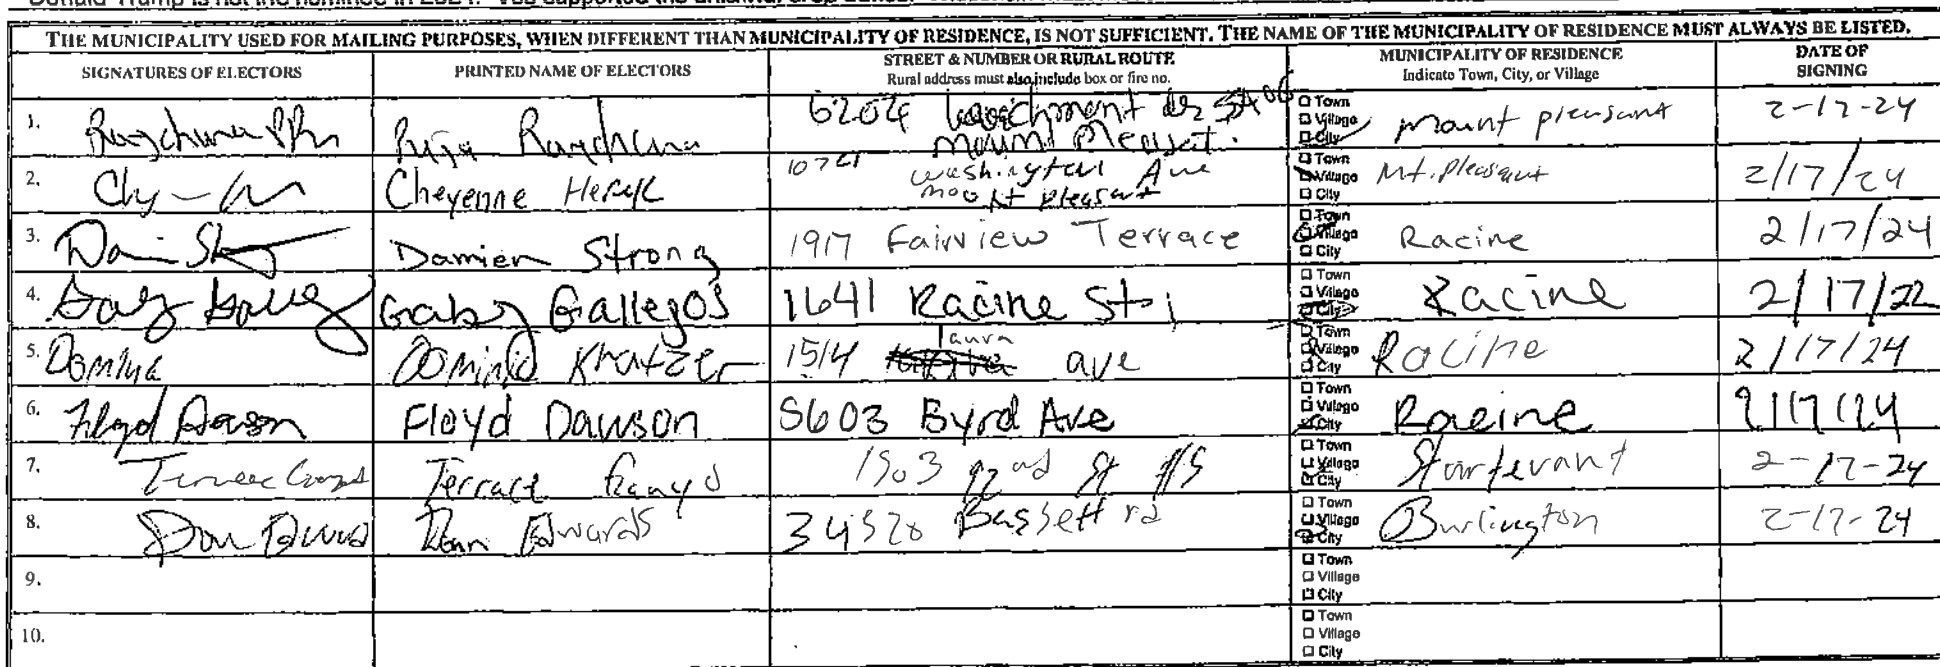 Donald Trump is not the nominee in 2024. Vos supported the
THE MUNICIPALITY USED FOR MAILING PURPOSES, WHEN DIFFERENT THAN MUNICIPALITY OF RESIDENCE, IS NOT SUFFICIENT. THE NAME OF THE MUNICIPALITY OF RESIDENCE MUST ALWAYS BE LISTED.
SIGNATURES OF ELECTORS PRINTED NAME OF ELECTORS STREET & NUMBER OR RURAL ROUTE MUNICIPALITY OF RESIDENCE DATE OF
Rural address must also include box or fire no. Indicate Town, City, or Village SIGNING
1. 6204 Mount Pleasat. Town Village City Mount pleasant 2-17-24
2. Cheyenne Washington Ave Mount Pleasant Town Village City Mt. Pleasant 2/17/24
3. Damien Strong 1917 Fairview Terrace Town Village City Racine 2/17/24
4. Gaby Gallegos 1641 Racine St. Town Village City Racine 2/17/22
5. Dominic Kratzer 1514 ave Town Village City Racine 2/17/24
6. Floyd Dawson Floyd Dawson 5603 Byrd Ave Town Village City Racine 2/17/24
7. 1503 92nd St Town Village City Sturtevant 2-17-24
8. Edwards 34520 Bassett rd Town Village City Burlington 2-17-24
9. Town Village City
10. Town Village City